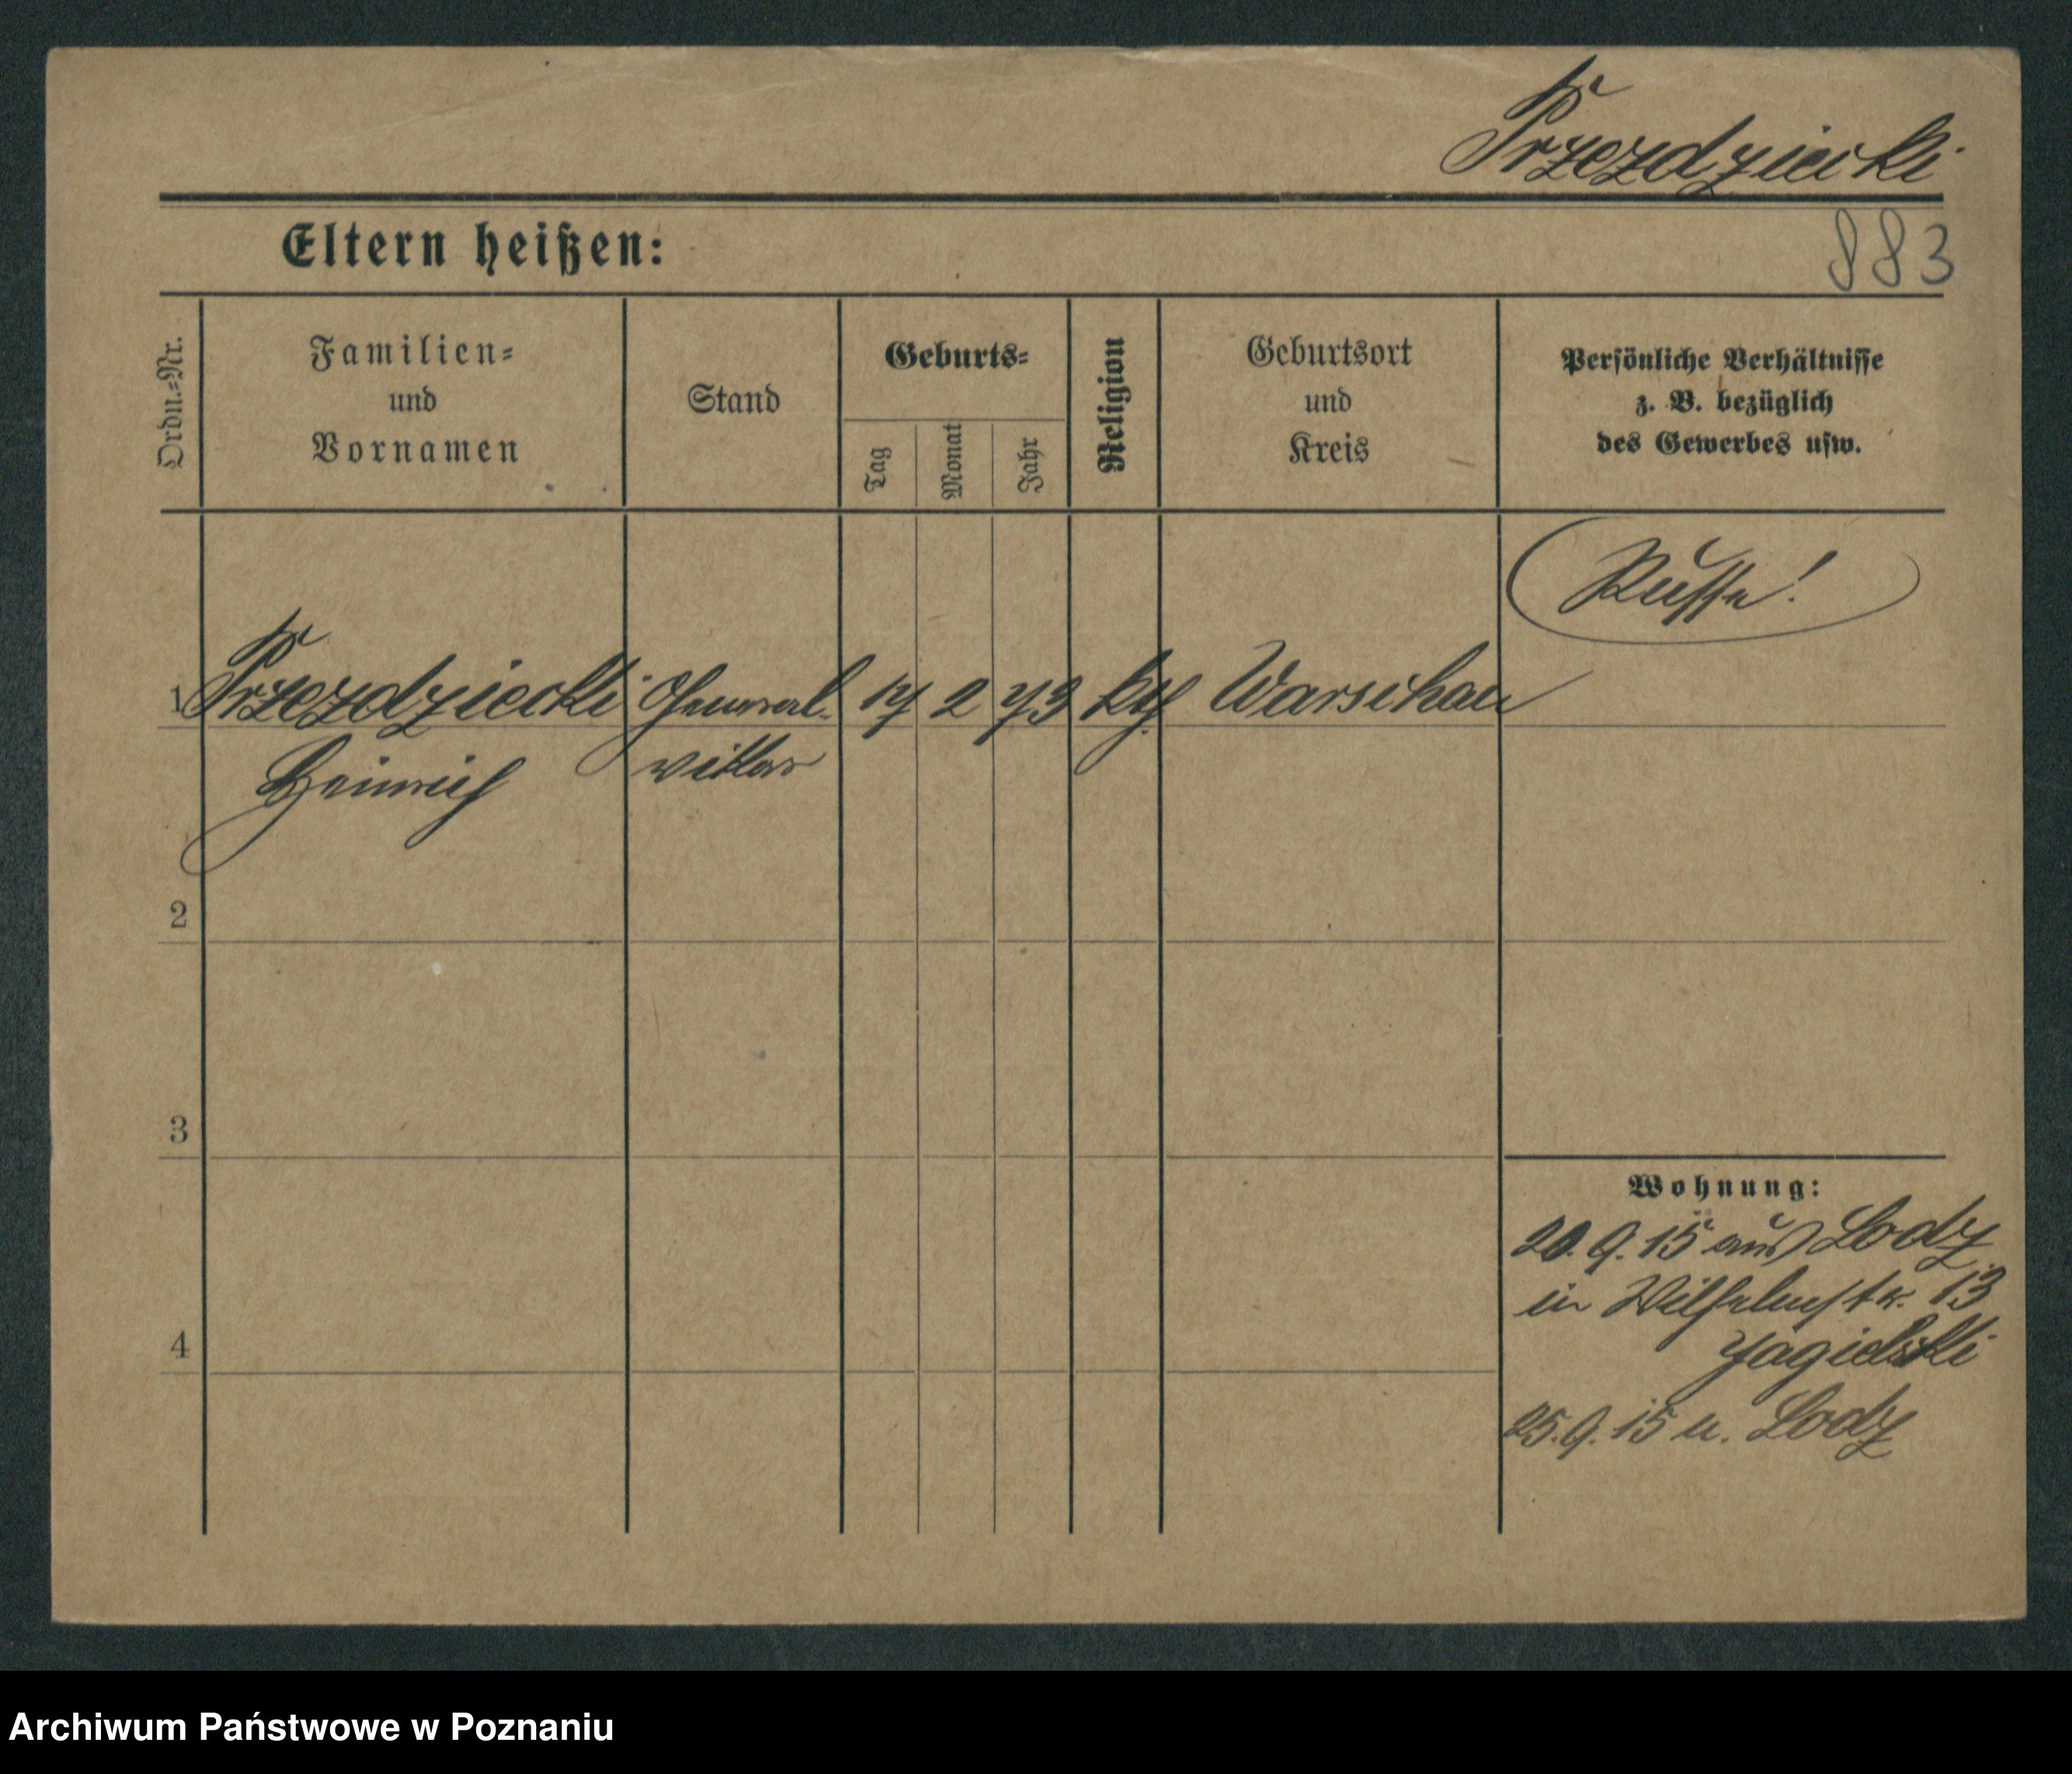 Przezdziecki
Eltern heißen:
883
Ordn.=Nr.
Familien=
und
Vornamen
Stand
Geburts=
Tag
Monat
Jahr
Religion
Geburtsort
und
Kreis
Persönliche Verhältnisse
z. B. bezüglich
des Gewerbes usw.
Russe!
1 Przezdziecki General. 17 2 73 kth. Warschau
Heinrich
2
3
4
Wohnung:
20.9.15 aus Lodz
in Wilhelmstr. 13
Jagielski
25.9.15 n. Lodz
Archiwum Państwowe w Poznaniu